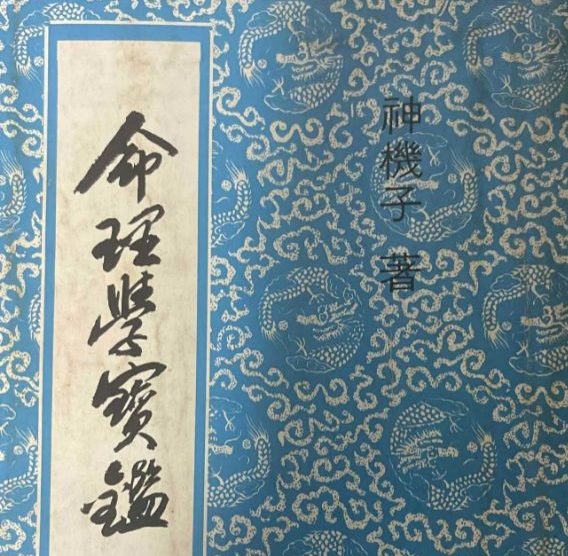 神機子 著
命理學寶鑑